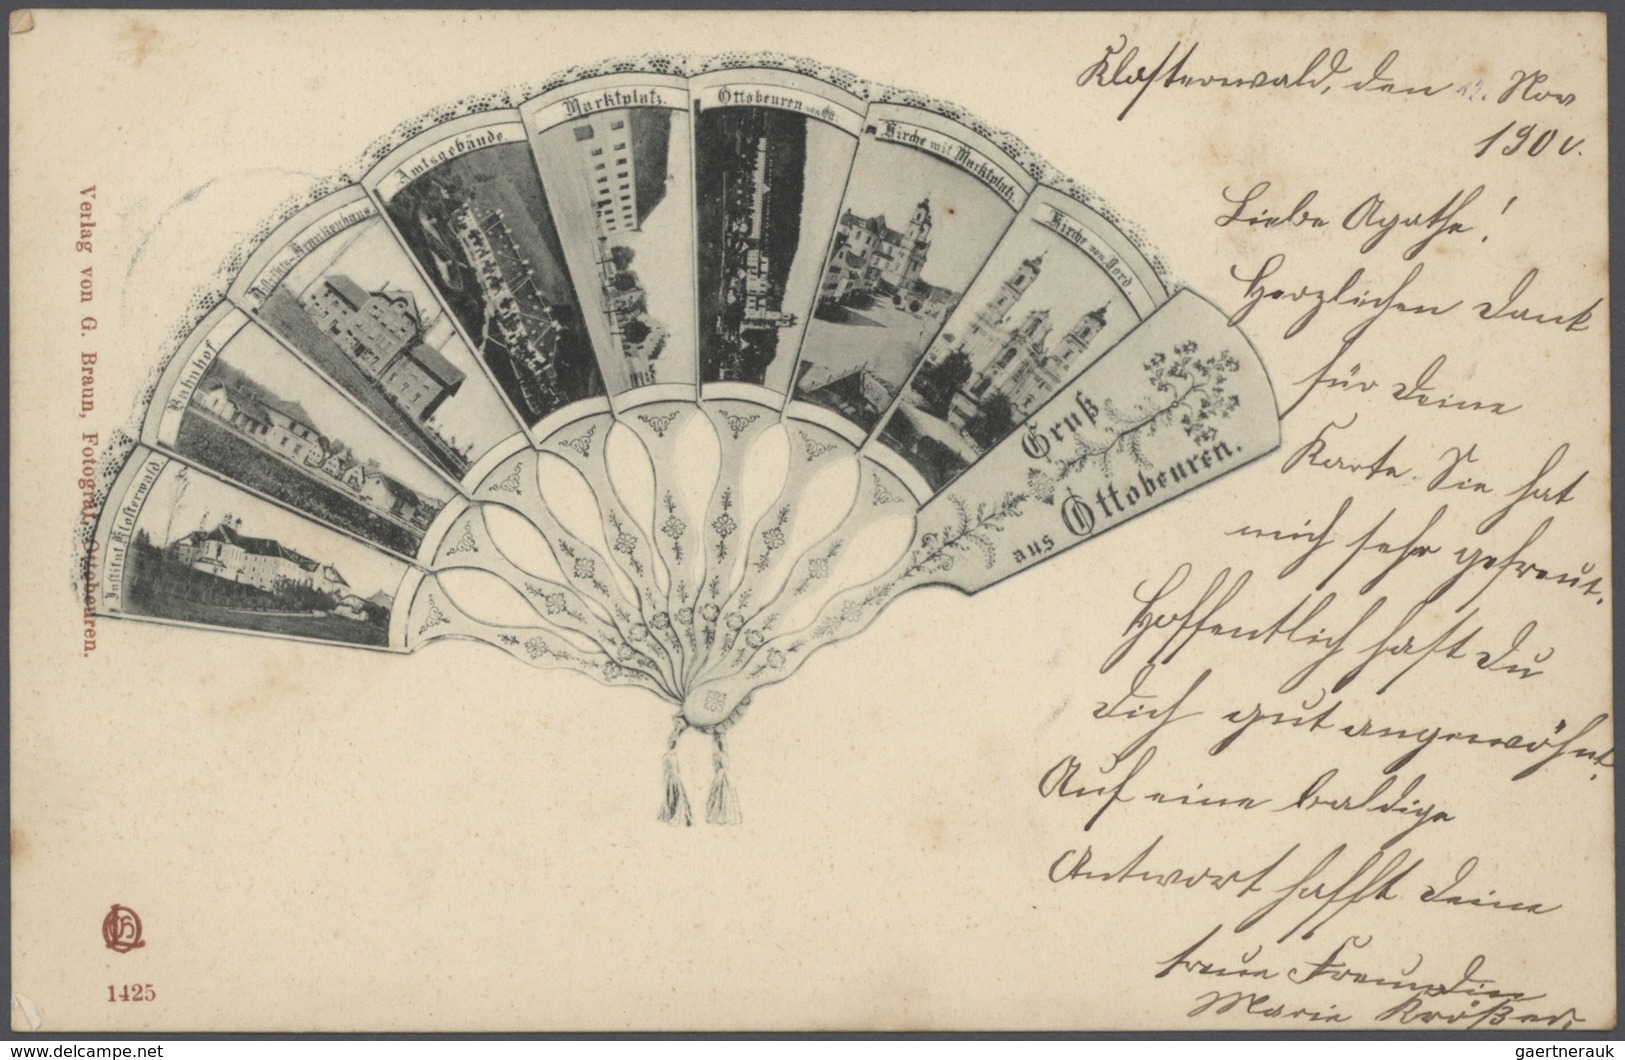 Klosterwald, den 12. Nov
1900.
Liebe Agathe!
Herzlichen Dank
für Deine
Karte. Sie hat
mich sehr gefreut.
Hoffentlich hast Du
Dich gut angewöhnt.
Auf eine baldige
Antwort hofft Deine
treue Freundin
Marie
Institut Klosterwald
Bahnhof
Distrikts-Krankenhaus
Amtsgebäude.
Marktplatz.
Ottobeuren von Ost.
Kirche mit Marktplatz.
Kirche von Nord
Gruß
aus Ottobeuren.
Verlag von G. Braun, Fotograf, Ottobeuren.
1425
delcampe.net
gaertnerauk